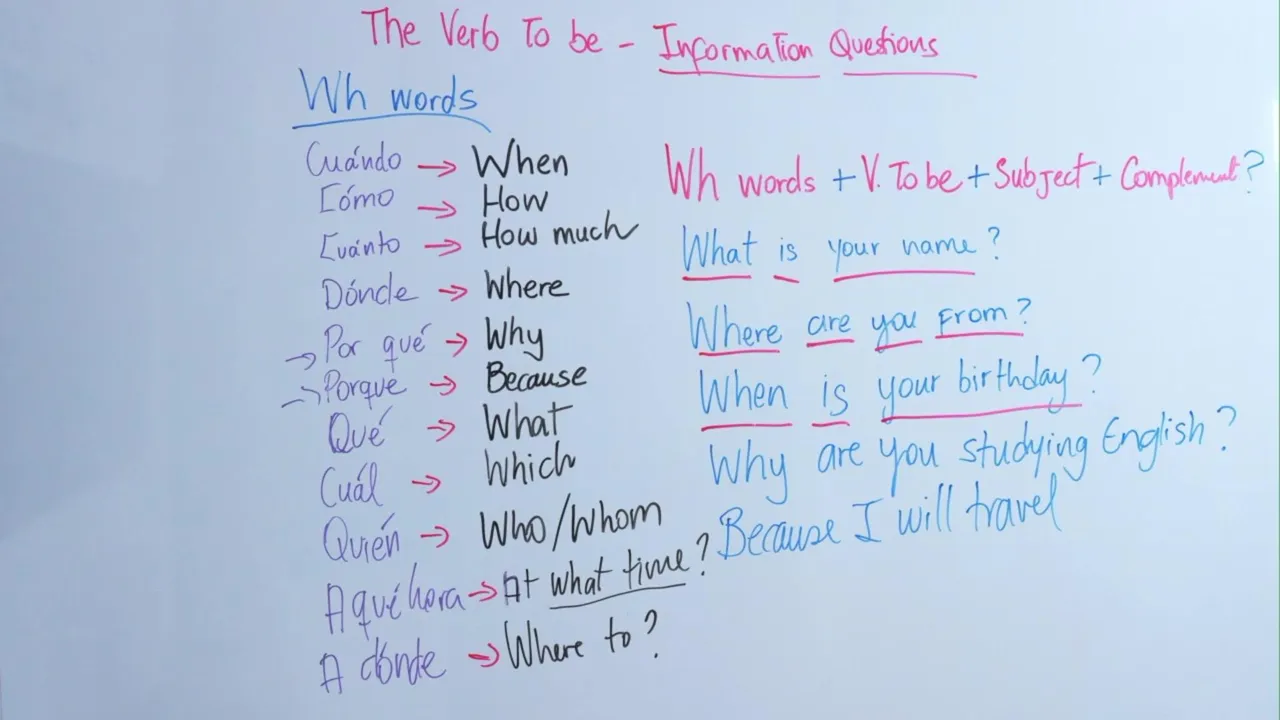 The Verb To be - Information Questions
Wh words
Cuándo → When
Cómo → How
Cuánto → How much
Dónde → Where
→ Por qué → Why
→ Porque → Because
Qué → What
Cuál → Which
Quién → Who/Whom
A qué hora → At what time?
A dónde → Where to?
Wh words + V. To be + Subject + Complement?
What is your name?
Where are you from?
When is your birthday?
Why are you studying English?
Because I will travel